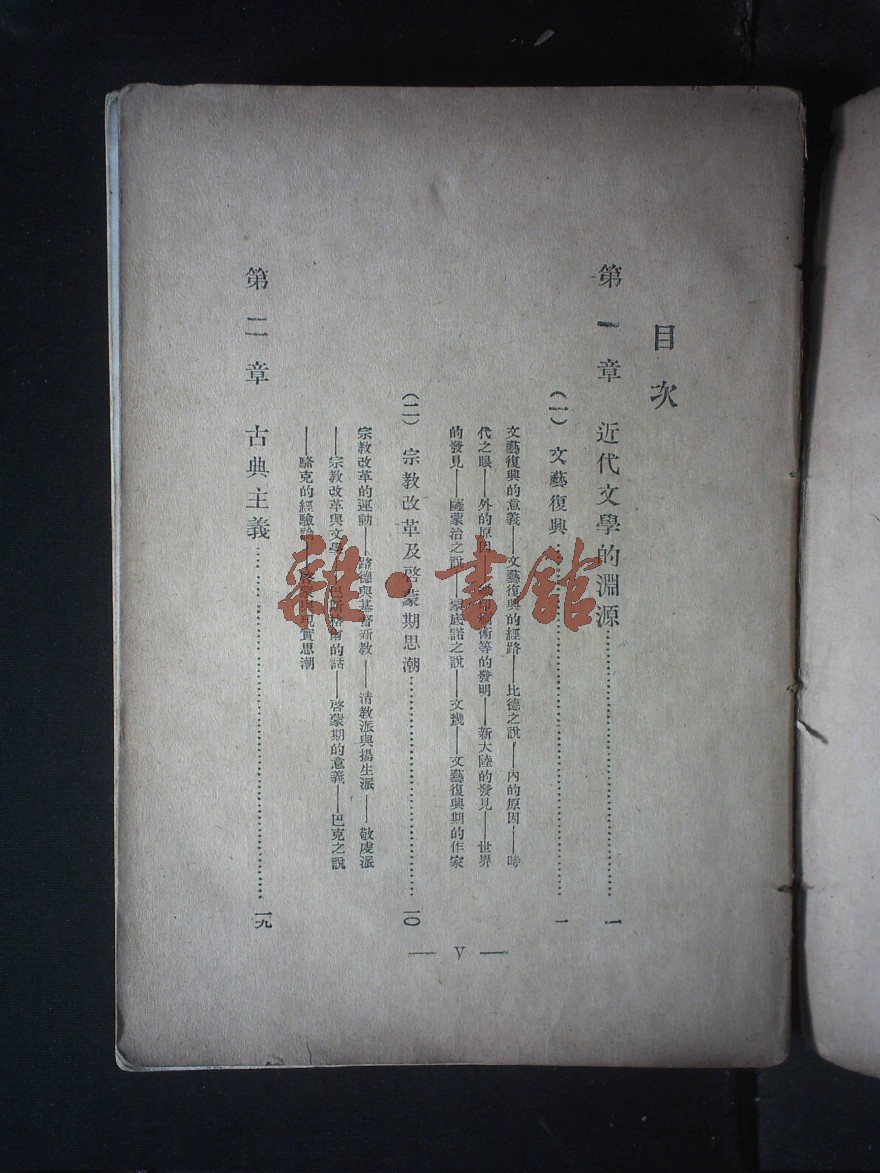 目次
第一章 近代文學的淵源……一
(一) 文藝復興……一
文藝復興的意義——文藝復興的經路——比德之說——內的原因——時
代之眼——外的原因——印刷術等的發明——新大陸的發見——世界
的發見——薩蒙治之說——之說——文藝——文藝復興期的作家
(二) 宗教改革及啓蒙期思潮……一〇
宗教改革的運動——路德與基督新教——清教派與揚生派——敬虔派
——宗教改革與文學——巴斯格爾的話——啓蒙期的意義——巴克之說
——駱克的經驗論——啓蒙與現實思潮
第二章 古典主義……一九
— V —
雜·書館